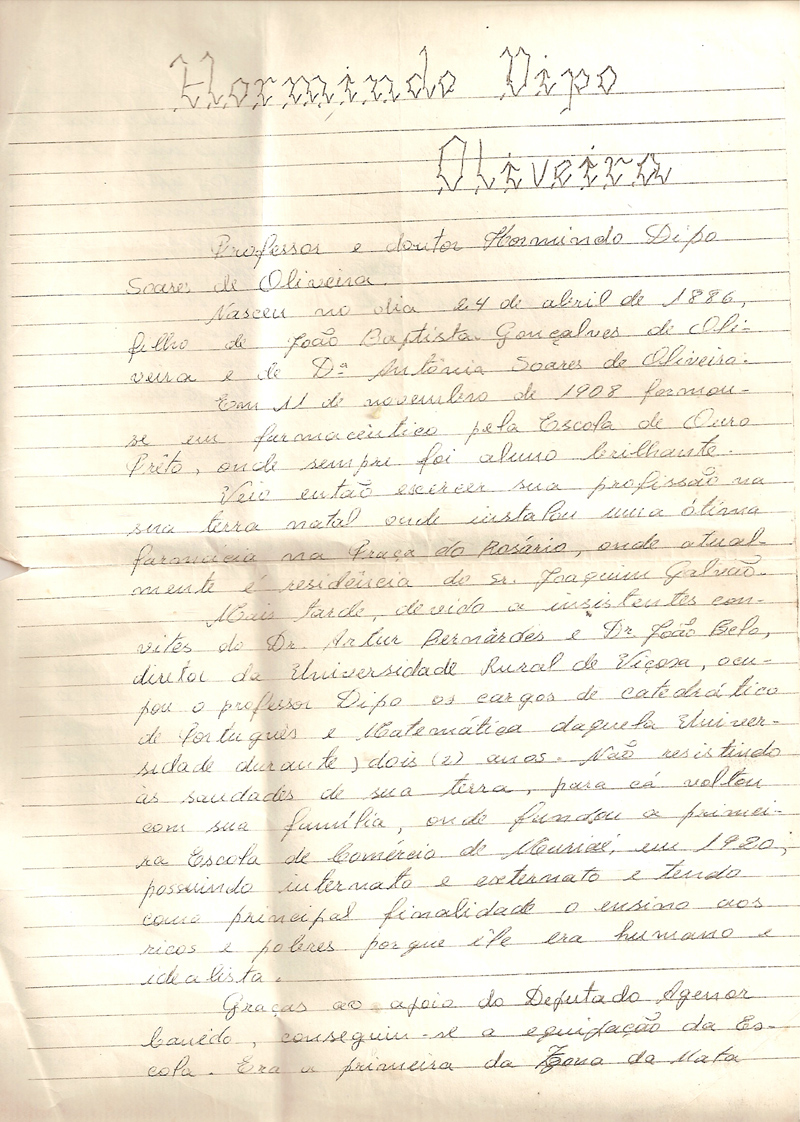 Hormindo Dipo
Oliveira
Professor e doutor Hormindo Dipo
Soares de Oliveira.
Nasceu no dia 24 de abril de 1886,
filho de João Baptista Gonçalves de Oli-
veira e de Dª Antônia Soares de Oliveira.
Em 11 de novembro de 1908 formou-
se em farmacêutico pela Escola de Ouro
Prêto, onde sempre foi aluno brilhante.
Veio então escercer sua profissão na
sua terra natal onde instalou uma ótima
farmacia na Praça do Rosário, onde atual-
mente é residência do sr. Joaquim Galvão.
Mais tarde, devido a insistentes con-
vites do Dr. Artur Bernardes e Dr João Belo,
diretor da Universidade Rural de Viçosa, ocu-
pou o professor Dipo os cargos de catedrático
de Português e Matemática daquela Univer-
sidade durante) dois (2) anos. Não resistindo
às saudades de sua terra, para cá voltou
com sua família, onde fundou a primei-
ra Escola de Comércio de Muriaé, em 1920;
possuindo internato e externato e tendo
como principal finalidade o ensino aos
ricos e pobres porque êle era humano e
idealista.
Graças ao apoio do Deputado Agenor
Canêdo, conseguiu-se a equipação da Es-
cola. Era a primeira da Zona da Mata